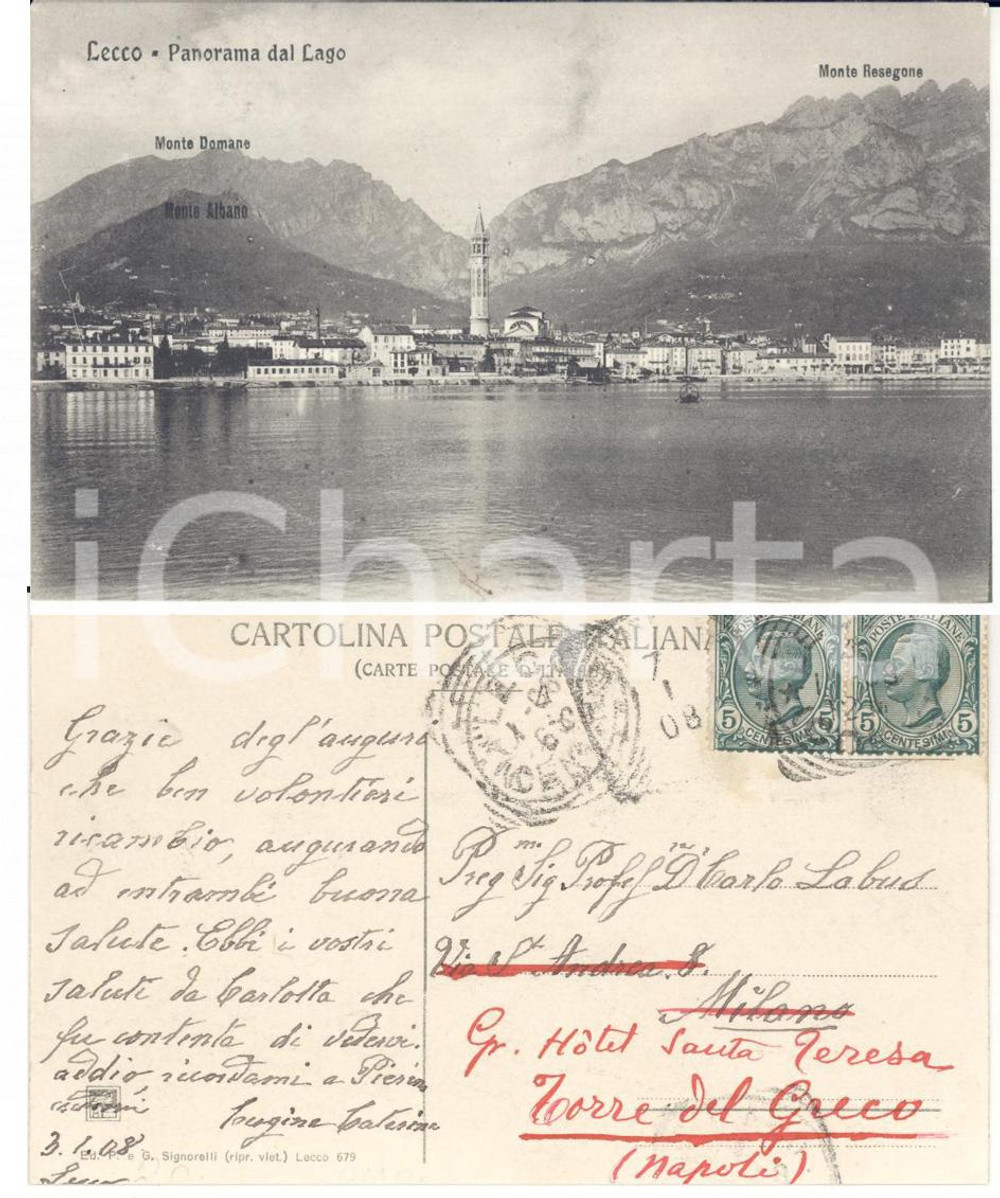 Lecco - Panorama dal Lago
Monte Resegone
Monte Domane
Monte Albano
iCharta
CARTOLINA POSTALE ITALIANA
(CARTE POSTALE D'ITALIE)
7
1
08
POSTE ITALIANE
POSTE ITALIANE
5 CENTESIMI 5
5 CENTESIMI 5
Grazie degl'auguri
che ben volontieri
ricambio, augurando
ad entrambi buona
salute. Ebbi i vostri
saluti da Carlotta che
fu contenta di vedervi.
addio, ricordami a Pierina
Cugina Caterina
3.1.08
Ed. P. e G. Signorelli (ripr. viet.) Lecco 679
Preg.mo Sig Prof Dr Carlo Labus
Via St Andrea
Milano
Gr. Hôtel Santa Teresa
Torre del Greco
(Napoli)